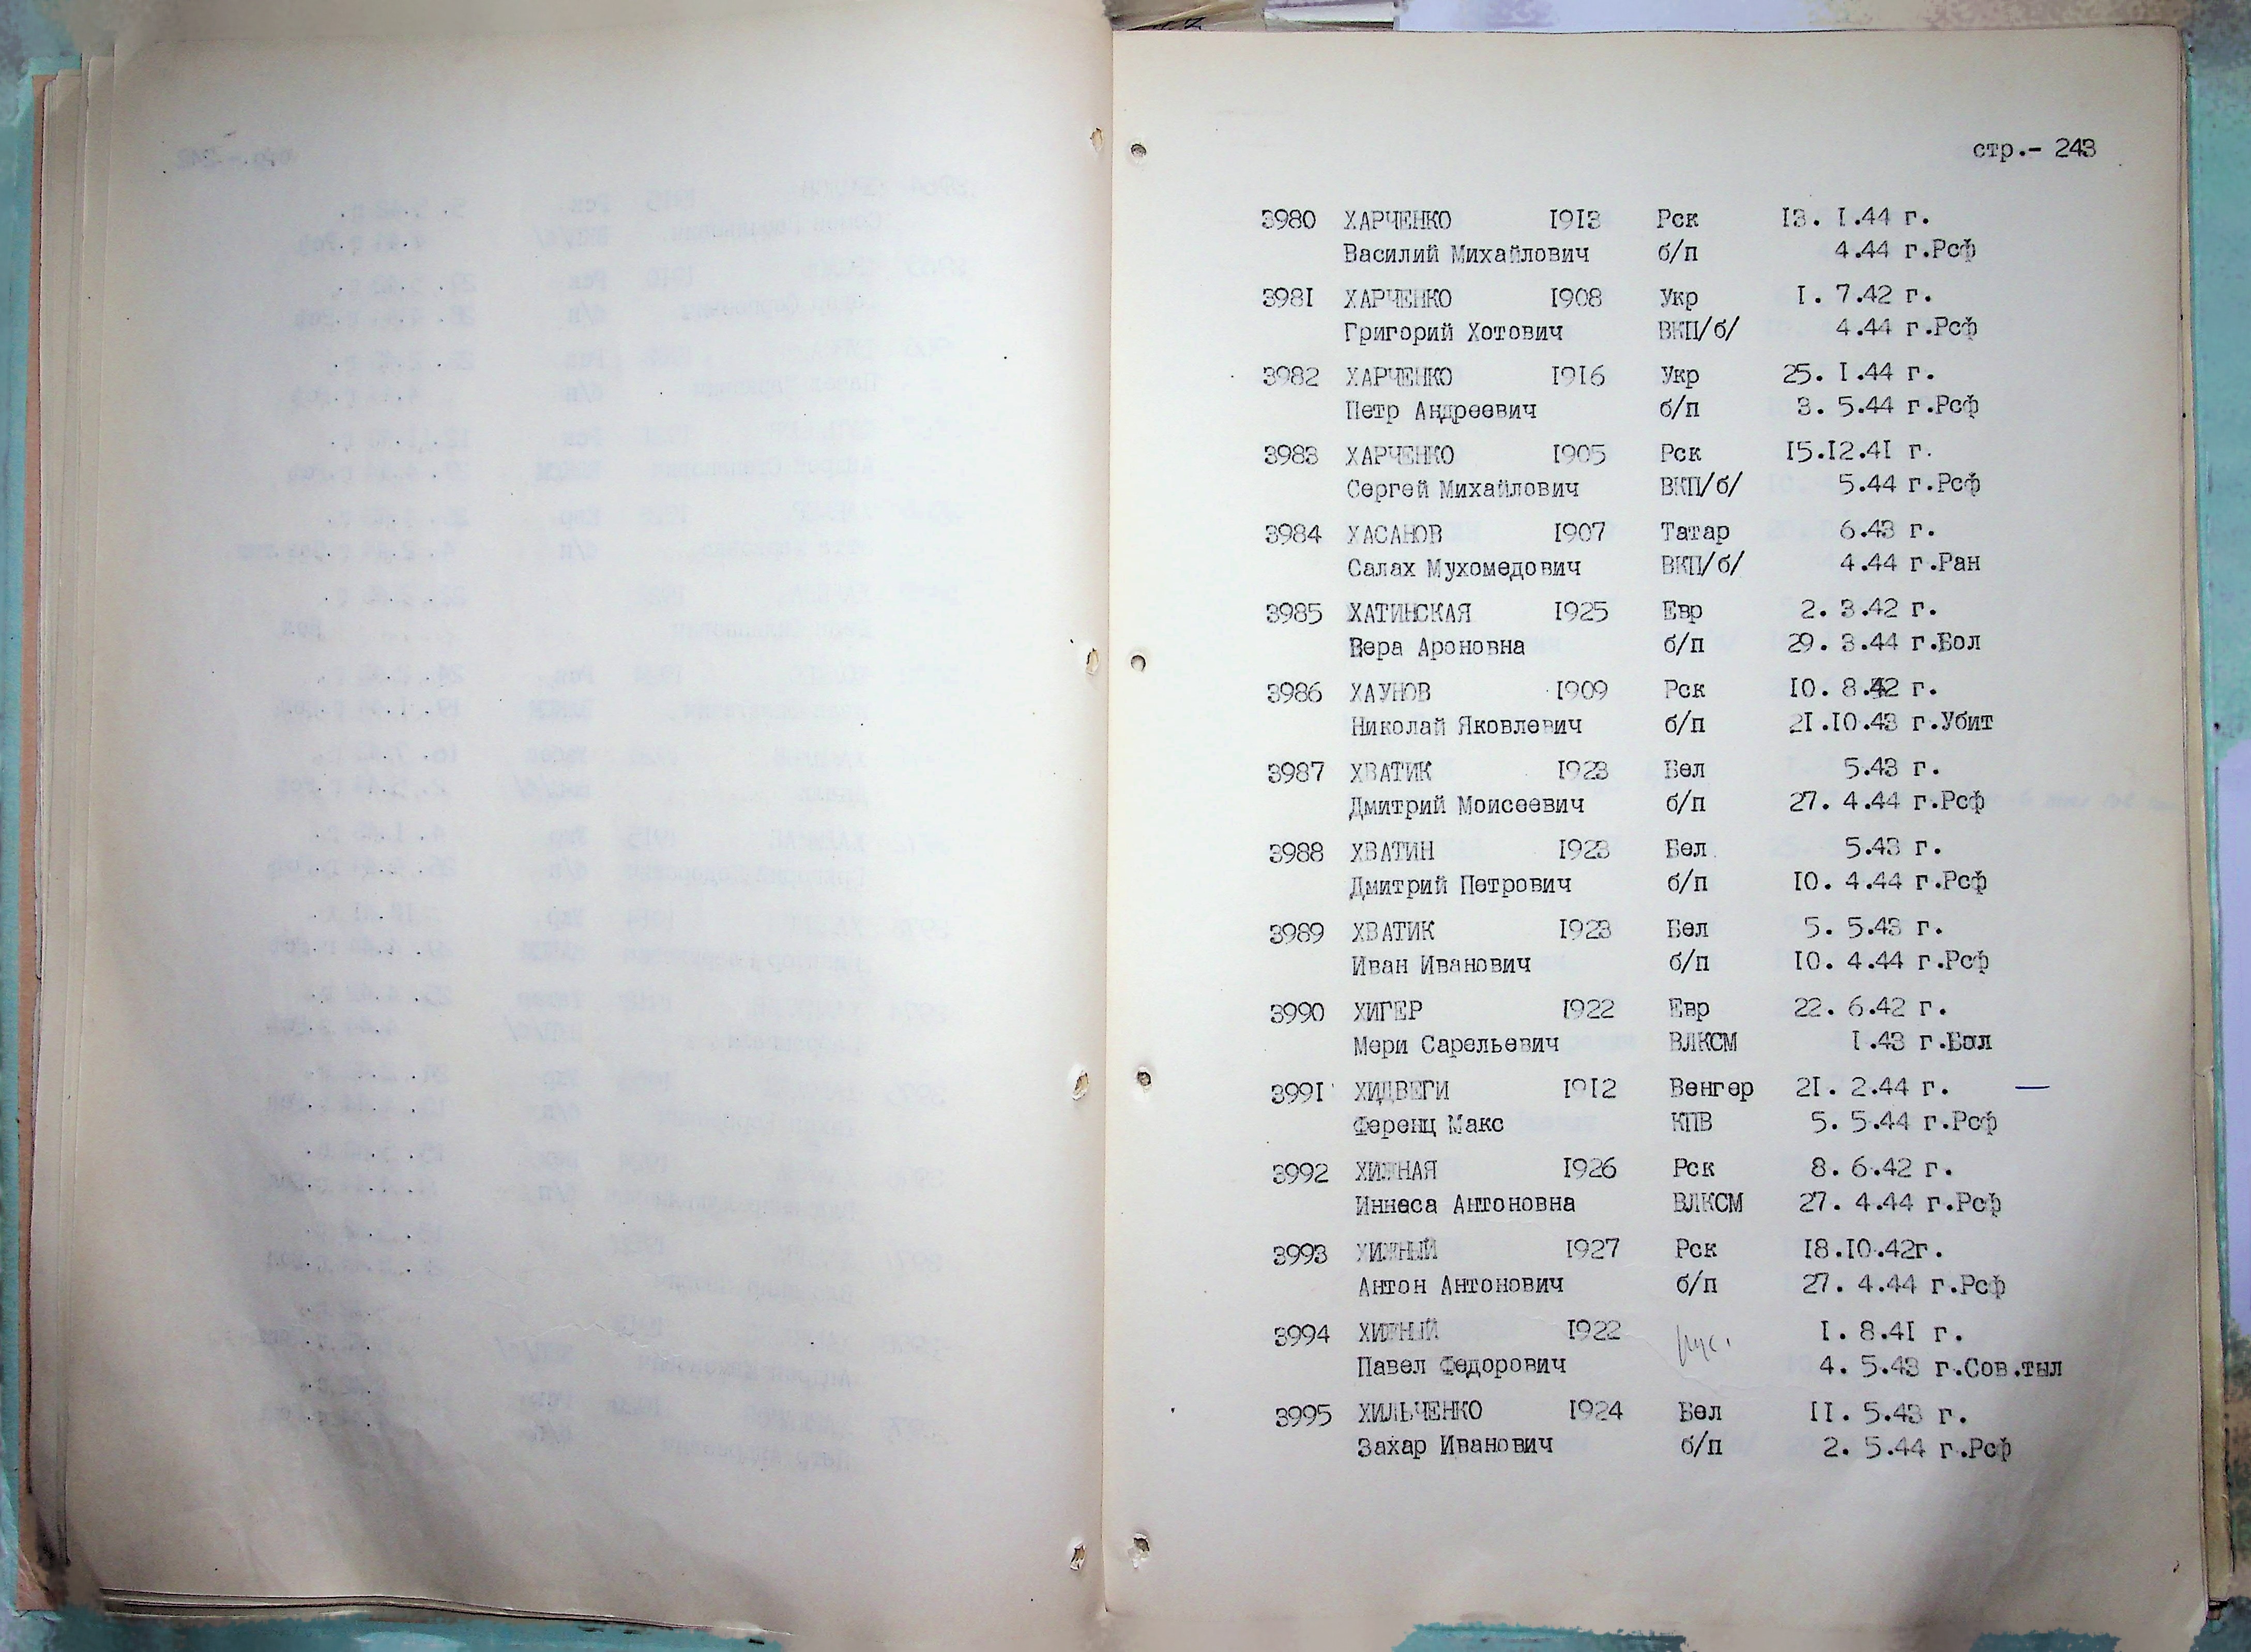 стр.- 243
3980 ХАРЧЕНКО 1913 Рск 13. 1.44 г.
Василий Михайлович б/п 4.44 г.Рсф
3981 ХАРЧЕНКО 1908 Укр 1. 7.42 г.
Григорий Хотович ВКП/б/ 4.44 г.Рсф
3982 ХАРЧЕНКО 1916 Укр 25. 1.44 г.
Петр Андреевич б/п 3. 5.44 г.Рсф
3983 ХАРЧЕНКО 1905 Рск 15.12.41 г.
Сергей Михайлович ВКП/б/ 5.44 г.Рсф
3984 ХАСАНОВ 1907 Татар 6.43 г.
Салах Мухомедович ВКП/б/ 4.44 г.Ран
3985 ХАТИНСКАЯ 1925 Евр 2. 3.42 г.
Вера Ароновна б/п 29. 3.44 г.Бол
3986 ХАУНОВ 1909 Рск 10. 8.42 г.
Николай Яковлевич б/п 21.10.43 г.Убит
3987 ХВАТИК 1923 Бел 5.43 г.
Дмитрий Моисеевич б/п 27. 4.44 г.Рсф
3988 ХВАТИН 1923 Бел 5.43 г.
Дмитрий Петрович б/п 10. 4.44 г.Рсф
3989 ХВАТИК 1923 Бел 5. 5.43 г.
Иван Иванович б/п 10. 4.44 г.Рсф
3990 ХИГЕР 1922 Евр 22. 6.42 г.
Мери Сарельевич ВЛКСМ 1.43 г.Бол
3991 ХИДВЕГИ 1912 Венгер 21. 2.44 г. —
Ференц Макс КПВ 5. 5.44 г.Рсф
3992 ХИЖНАЯ 1926 Рск 8. 6.42 г.
Иннеса Антоновна ВЛКСМ 27. 4.44 г.Рсф
3993 ХИЖНЫЙ 1927 Рск 18.10.42г.
Антон Антонович б/п 27. 4.44 г.Рсф
3994 ХИЖНЫЙ 1922 1. 8.41 г.
Павел Федорович 4. 5.43 г.Сов.тыл
3995 ХИЛЬЧЕНКО 1924 Бел 11. 5.43 г.
Захар Иванович б/п 2. 5.44 г.Рсф